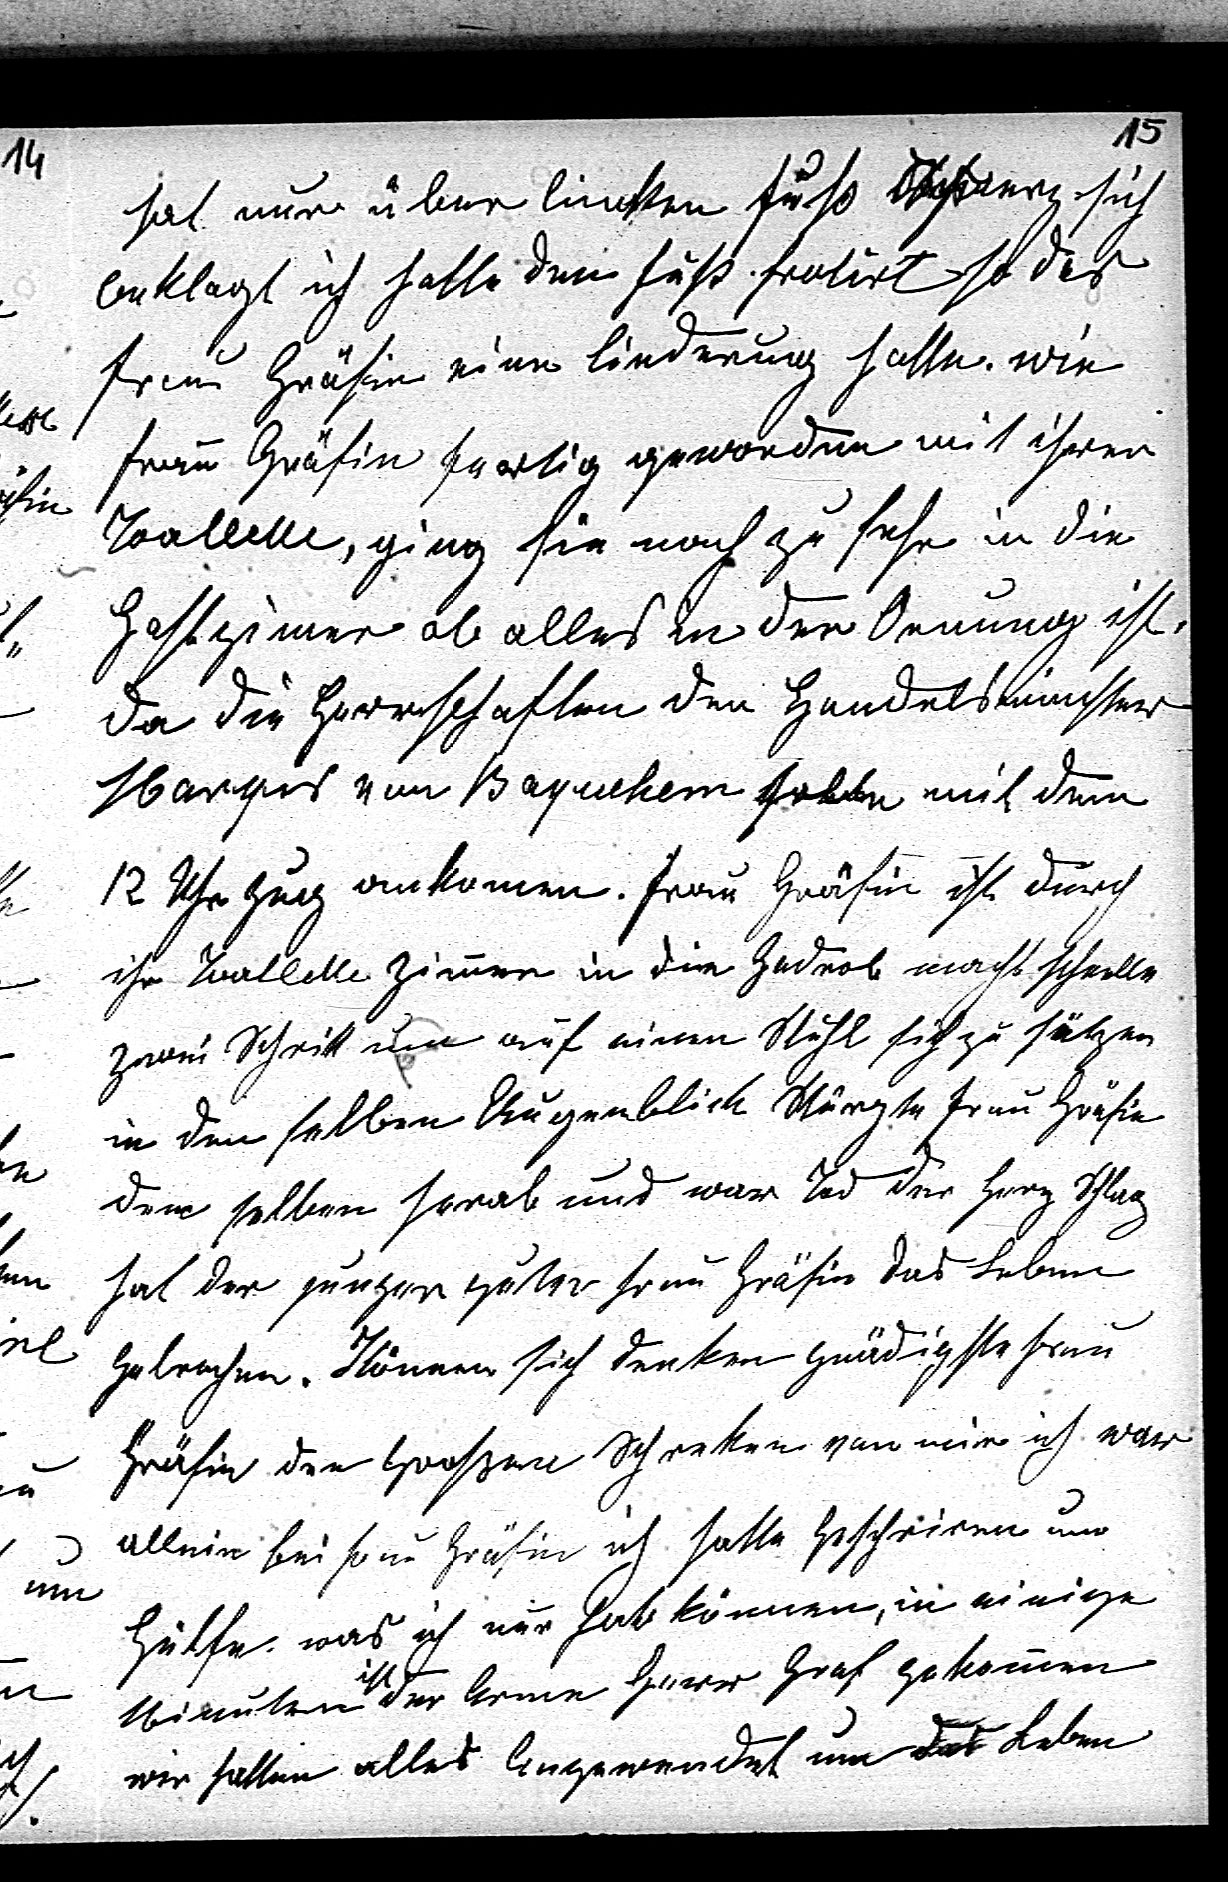 14
15
hat nur über lincken Fuß Schmerz sich
beklagt ich hatte den Fuß frotirt so das
Frau Gräfin eine linderung hatte. wie
Frau Gräfin fertig geworden mit ihrer
Toallette, ging sie noch zu sehe in die
Gastzimer ob alles in der Ornung ist.
da die Herrschaften den Handelsminister
Marquis von Baquehem sollte mit dem
12 Uhr Zug ankomen. Frau Gräfin ist durch
ihr Toallette Zimmer in die Gadrob macht schnelle
zwei Schritt um auf einen Stuhl sich zu sätzen
in den selben Augenblick Stürzte Frau Gräfin
dem selben herab und war Tod der Herz Schlag
hat der gutter Frau Gräfin das Leben
gebrochen. Können sich denken gnädigste Frau
Gräfin den Großsen Schreken von mir ich war
allein bei Frau Gräfin ich hatte Geschriren um
Hülfe. was ich nur hab können, in einige
Minuten ist der Arme Herr Graf gekommen
wir hatten alles Angewendet um das Leben